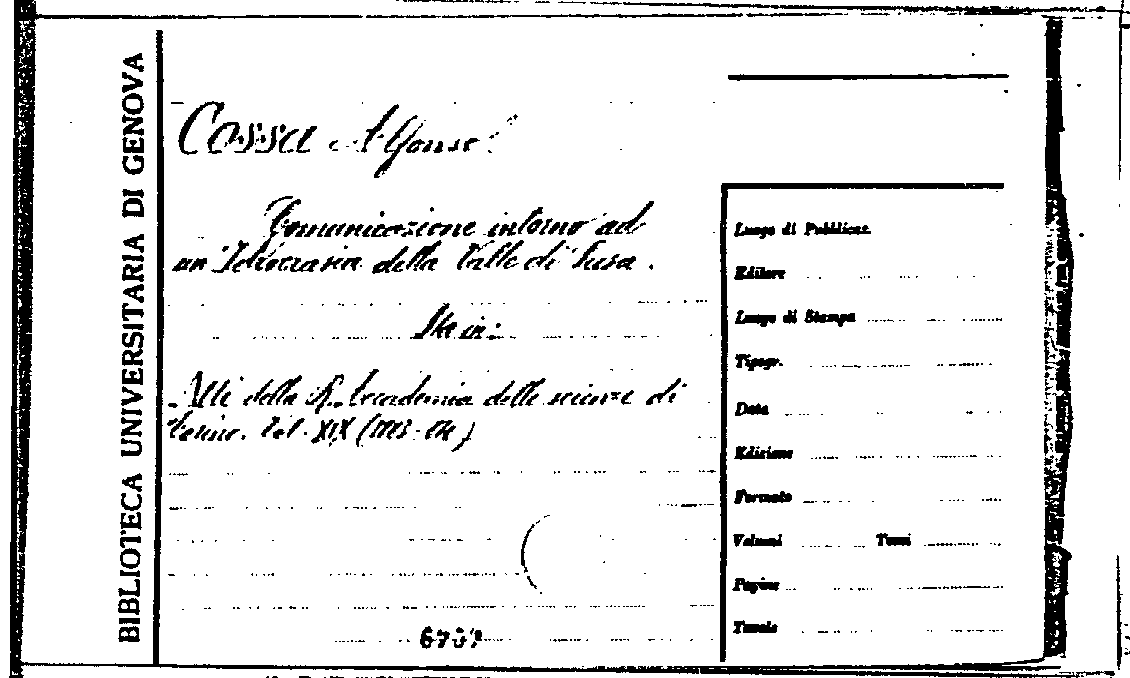 BIBLIOTECA UNIVERSITARIA DI GENOVA
Cossa Alfonso
Comunicazione intorno ad
un' Idocrasia della Valle di Susa.
Sta in:
Atti della R. Accademia delle scienze di
Torino. Vol. XIX (1883-84)
6707
Luogo di Pubblicaz.
Editore
Luogo di Stampa
Tipogr.
Data
Edizione
Formato
Volumi Tomi
Pagine
Tavole